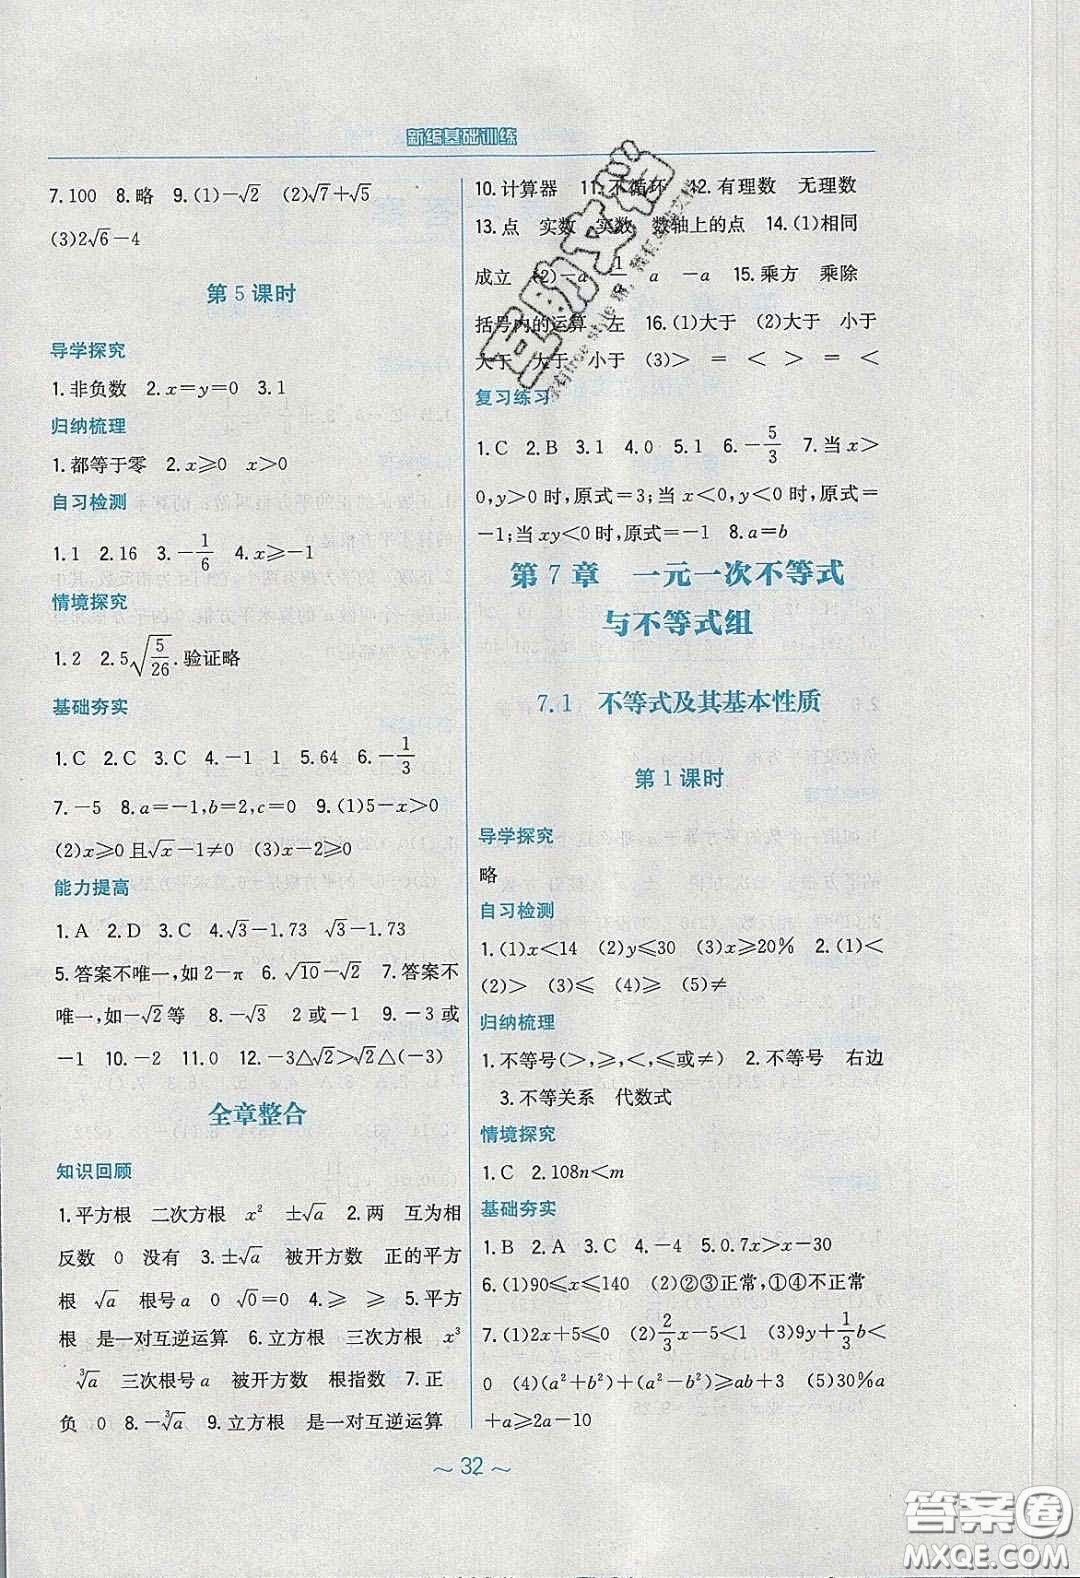 新编基础训练
7.100 8.略 9.(1)-√2 (2)√7+√5
(3)2√6-4
第5课时
导学探究
1.非负数 2.x=y=0 3.1
归纳梳理
1.都等于零 2.x⩾0 x>0
自习检测
1.1 2.16 3.-1/6 4.x⩾-1
情境探究
1.2 2.5√(5/26).验证略
基础夯实
1.C 2.C 3.C 4.-1 1 5.64 6.-1/3
7.-5 8.a=-1,b=2,c=0 9.(1)5-x>0
(2)x⩾0且√x-1≠0 (3)x-2=0
能力提高
1.A 2.D 3.C 4.√3-1.73 √3-1.73
5.答案不唯一,如2-π 6.√10-√2 7.答案不
唯一,如-√2等 8.-√3 2或-1 9.-3或
-1 10.-2 11.0 12.-3△√2>√2△(-3)
全章整合
知识回顾
1.平方根 二次方根 x² ±√a 2.两 互为相
反数 0 没有 3.±√a 被开方数 正的平方
根 √a 根号a 0 √0=0 4.⩾ ⩾ 5.平方
根 是一对互逆运算 6.立方根 三次方根 x³
∛a 三次根号a 被开方数 根指数 7.正
负 0 8.-∛a 9.立方根 是一对互逆运算
10.计算器 11.不循环 12.有理数 无理数
13.点 实数 实数 数轴上的点 14.(1)相同
成立 (2)-a 1/a a -a 15.乘方 乘除
括号内的运算 左 16.(1)大于 (2)大于 小于
大于 大于 小于 (3)> = < > = <
复习练习
1.C 2.B 3.1 4.0 5.1 6.-5/3 7.当x>
0,y>0时,原式=3;当x<0,y<0时,原式=
-1;当xy<0时,原式=-1 8.a=b
第7章 一元一次不等式
与不等式组
7.1 不等式及其基本性质
第1课时
导学探究
略
自习检测
1.(1)x<14 (2)y⩽30 (3)x⩾20% 2.(1)<
(2)> (3)⩽ (4)⩾ (5)≠
归纳梳理
1.不等号(>,⩾,<,⩽或≠) 2.不等号 右边
3.不等关系 代数式
情境探究
1.C 2.108n<m
基础夯实
1.B 2.A 3.C 4.-4 5.0.7x>x-30
6.(1)90⩽x⩽140 (2)②③正常,①④不正常
7.(1)2x+5⩽0 (2)2/3x-5<1 (3)9y+1/3b<
0 (4)(a²+b²)+(a²-b²)⩾ab+3 (5)30%a
+a⩾2a-10
~32~
答案圈
MXQE.COM